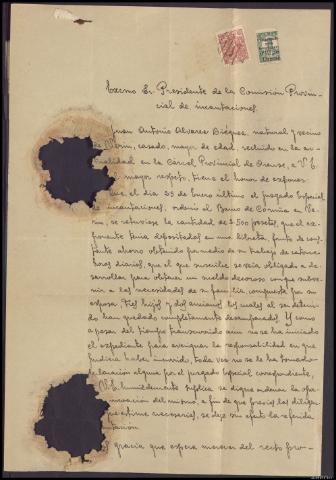 Excmo Sr. Presidente de la Comisión Provin-
cial de incautaciones.
Juan Antonio Alvarez Diéguez, natural y vecino
de Verín, casado, mayor de edad, recluido en la ac-
tualidad en la Cárcel Provincial de Orense, a V.E.
mayor respeto, tiene el honor de exponer:
que el dia 25 de Enero último el juzgado Especial
incautaciones, ordenó al Banco de Coruña en Ve-
rin, se retuviese la cantidad de 2.500 pesetas, que el ex-
ponente tenia depositadas en una libreta, fruto de cons-
tante ahorro obtenido por medio de su trabajo de
diario, que el que suscribe, se veia obligado a de-
sarrollar para obtener un sueldo decoroso con que subve-
nir a las necesidades de su familia, compuesta por su
esposa, tres hijos y dos ancianos los cuales al ser deteni-
do han quedado completamente desamparados. Y como
a pesar del tiempo transcurrido aun no se ha iniciado
el expediente para averiguar la responsabilidad en que
pudiera haber incurrido, toda vez no se le ha tomado
declaración alguna por el juzgado especial correspondiente,
V.E. humildemente suplica se digne ordenar la
del mismo, a fin de que previas las diligen-
que estime necesarias, se deje sin efecto la referida
gracia que espera merecer del recto pro-